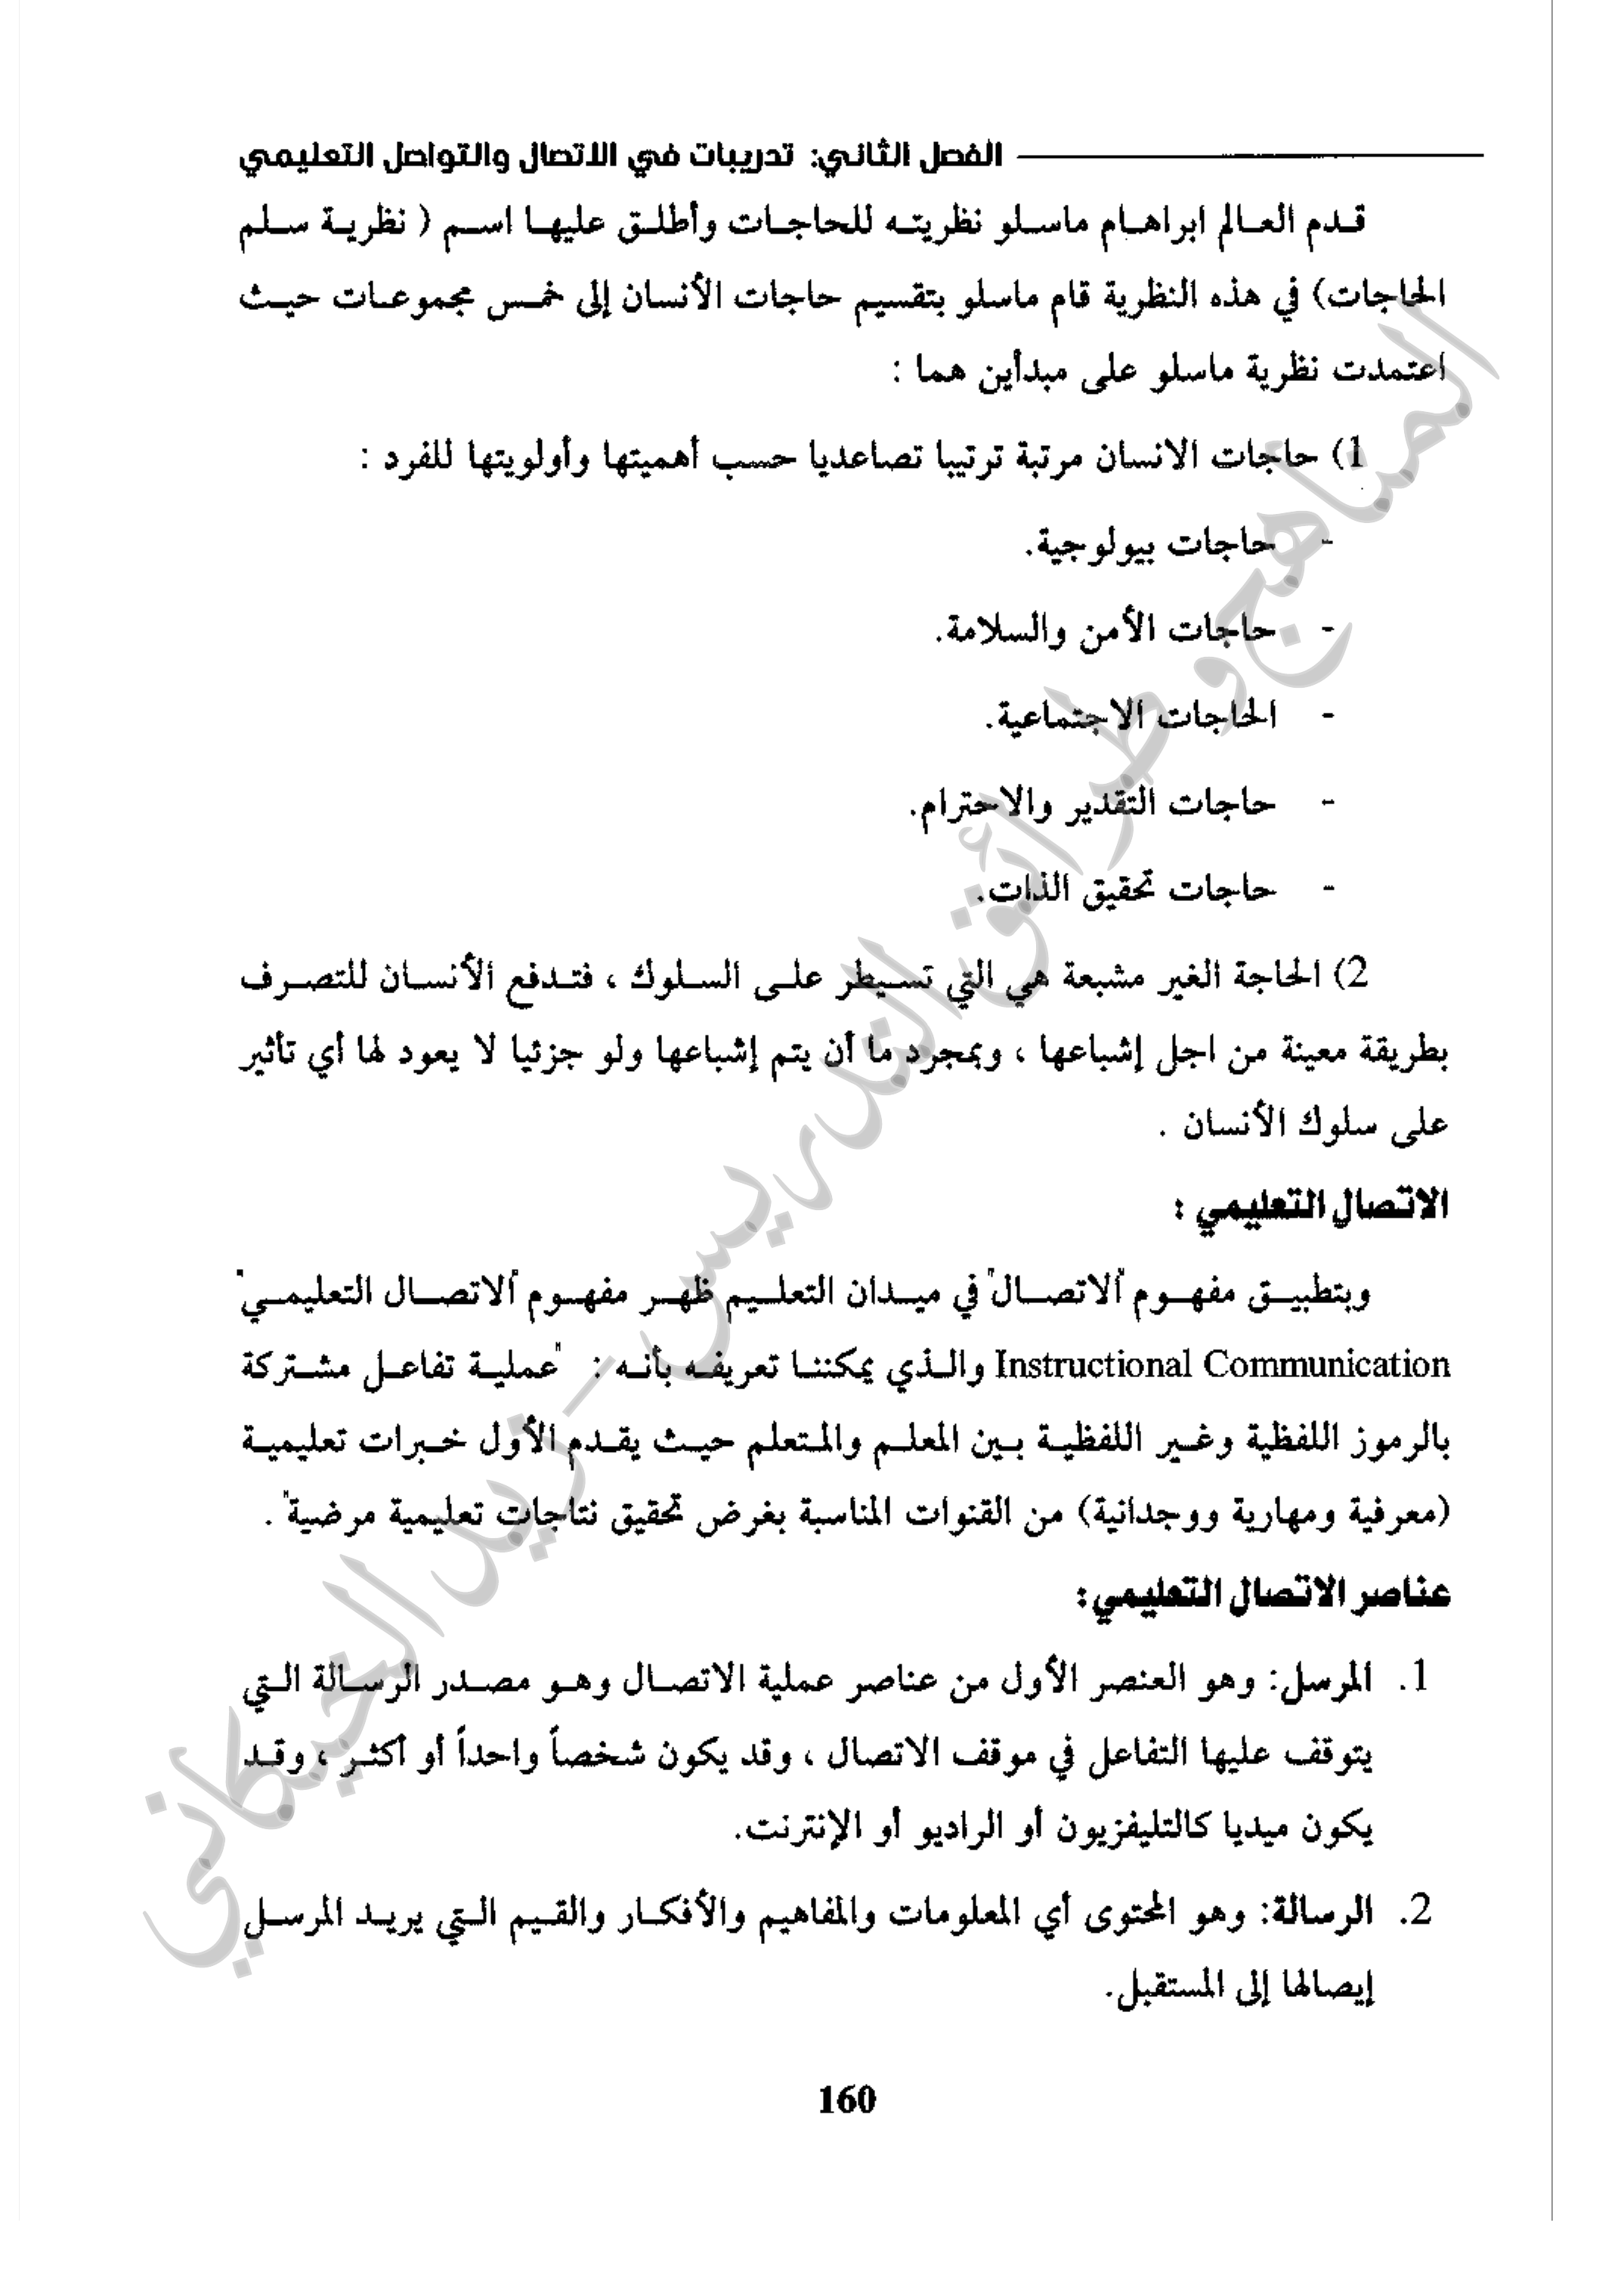 الفصل الثاني: تدريبات في الاتصال والتواصل التعليمي
قدم العالم ابراهام ماسلو نظريته للحاجات وأطلق عليها اسم ( نظرية سلم
الحاجات) في هذه النظرية قام ماسلو بتقسيم حاجات الأنسان إلى خمس مجموعات حيث
اعتمدت نظرية ماسلو على مبدأين هما :
1) حاجات الانسان مرتبة ترتيبا تصاعديا حسب أهميتها وأولويتها للفرد :
- حاجات بيولوجية.
- حاجات الأمن والسلامة.
- الحاجات الاجتماعية.
- حاجات التقدير والاحترام.
- حاجات تحقيق الذات.
2) الحاجة الغير مشبعة هي التي تسيطر على السلوك ، فتدفع الأنسان للتصرف
بطريقة معينة من اجل إشباعها ، وبمجرد ما أن يتم إشباعها ولو جزئيا لا يعود لها أي تأثير
على سلوك الأنسان .
الاتصال التعليمي :
وبتطبيق مفهوم "الاتصال" في ميدان التعليم ظهر مفهوم "الاتصال التعليمي"
Instructional Communication والذي يمكننا تعريفه بأنه : "عملية تفاعل مشتركة
بالرموز اللفظية وغير اللفظية بين المعلم والمتعلم حيث يقدم الأول خبرات تعليمية
(معرفية ومهارية ووجدانية) من القنوات المناسبة بغرض تحقيق نتاجات تعليمية مرضية" .
عناصر الاتصال التعليمي:
1. المرسل: وهو العنصر الأول من عناصر عملية الاتصال وهو مصدر الرسالة التي
يتوقف عليها التفاعل في موقف الاتصال ، وقد يكون شخصاً واحداً أو أكثر ، وقد
يكون ميديا كالتليفزيون أو الراديو أو الإنترنت.
2. الرسالة: وهو المحتوى أي المعلومات والمفاهيم والأفكار والقيم التي يريد المرسل
إيصالها إلى المستقبل.
160
المناهج وطرائق التدريس - زيد الخيكاني